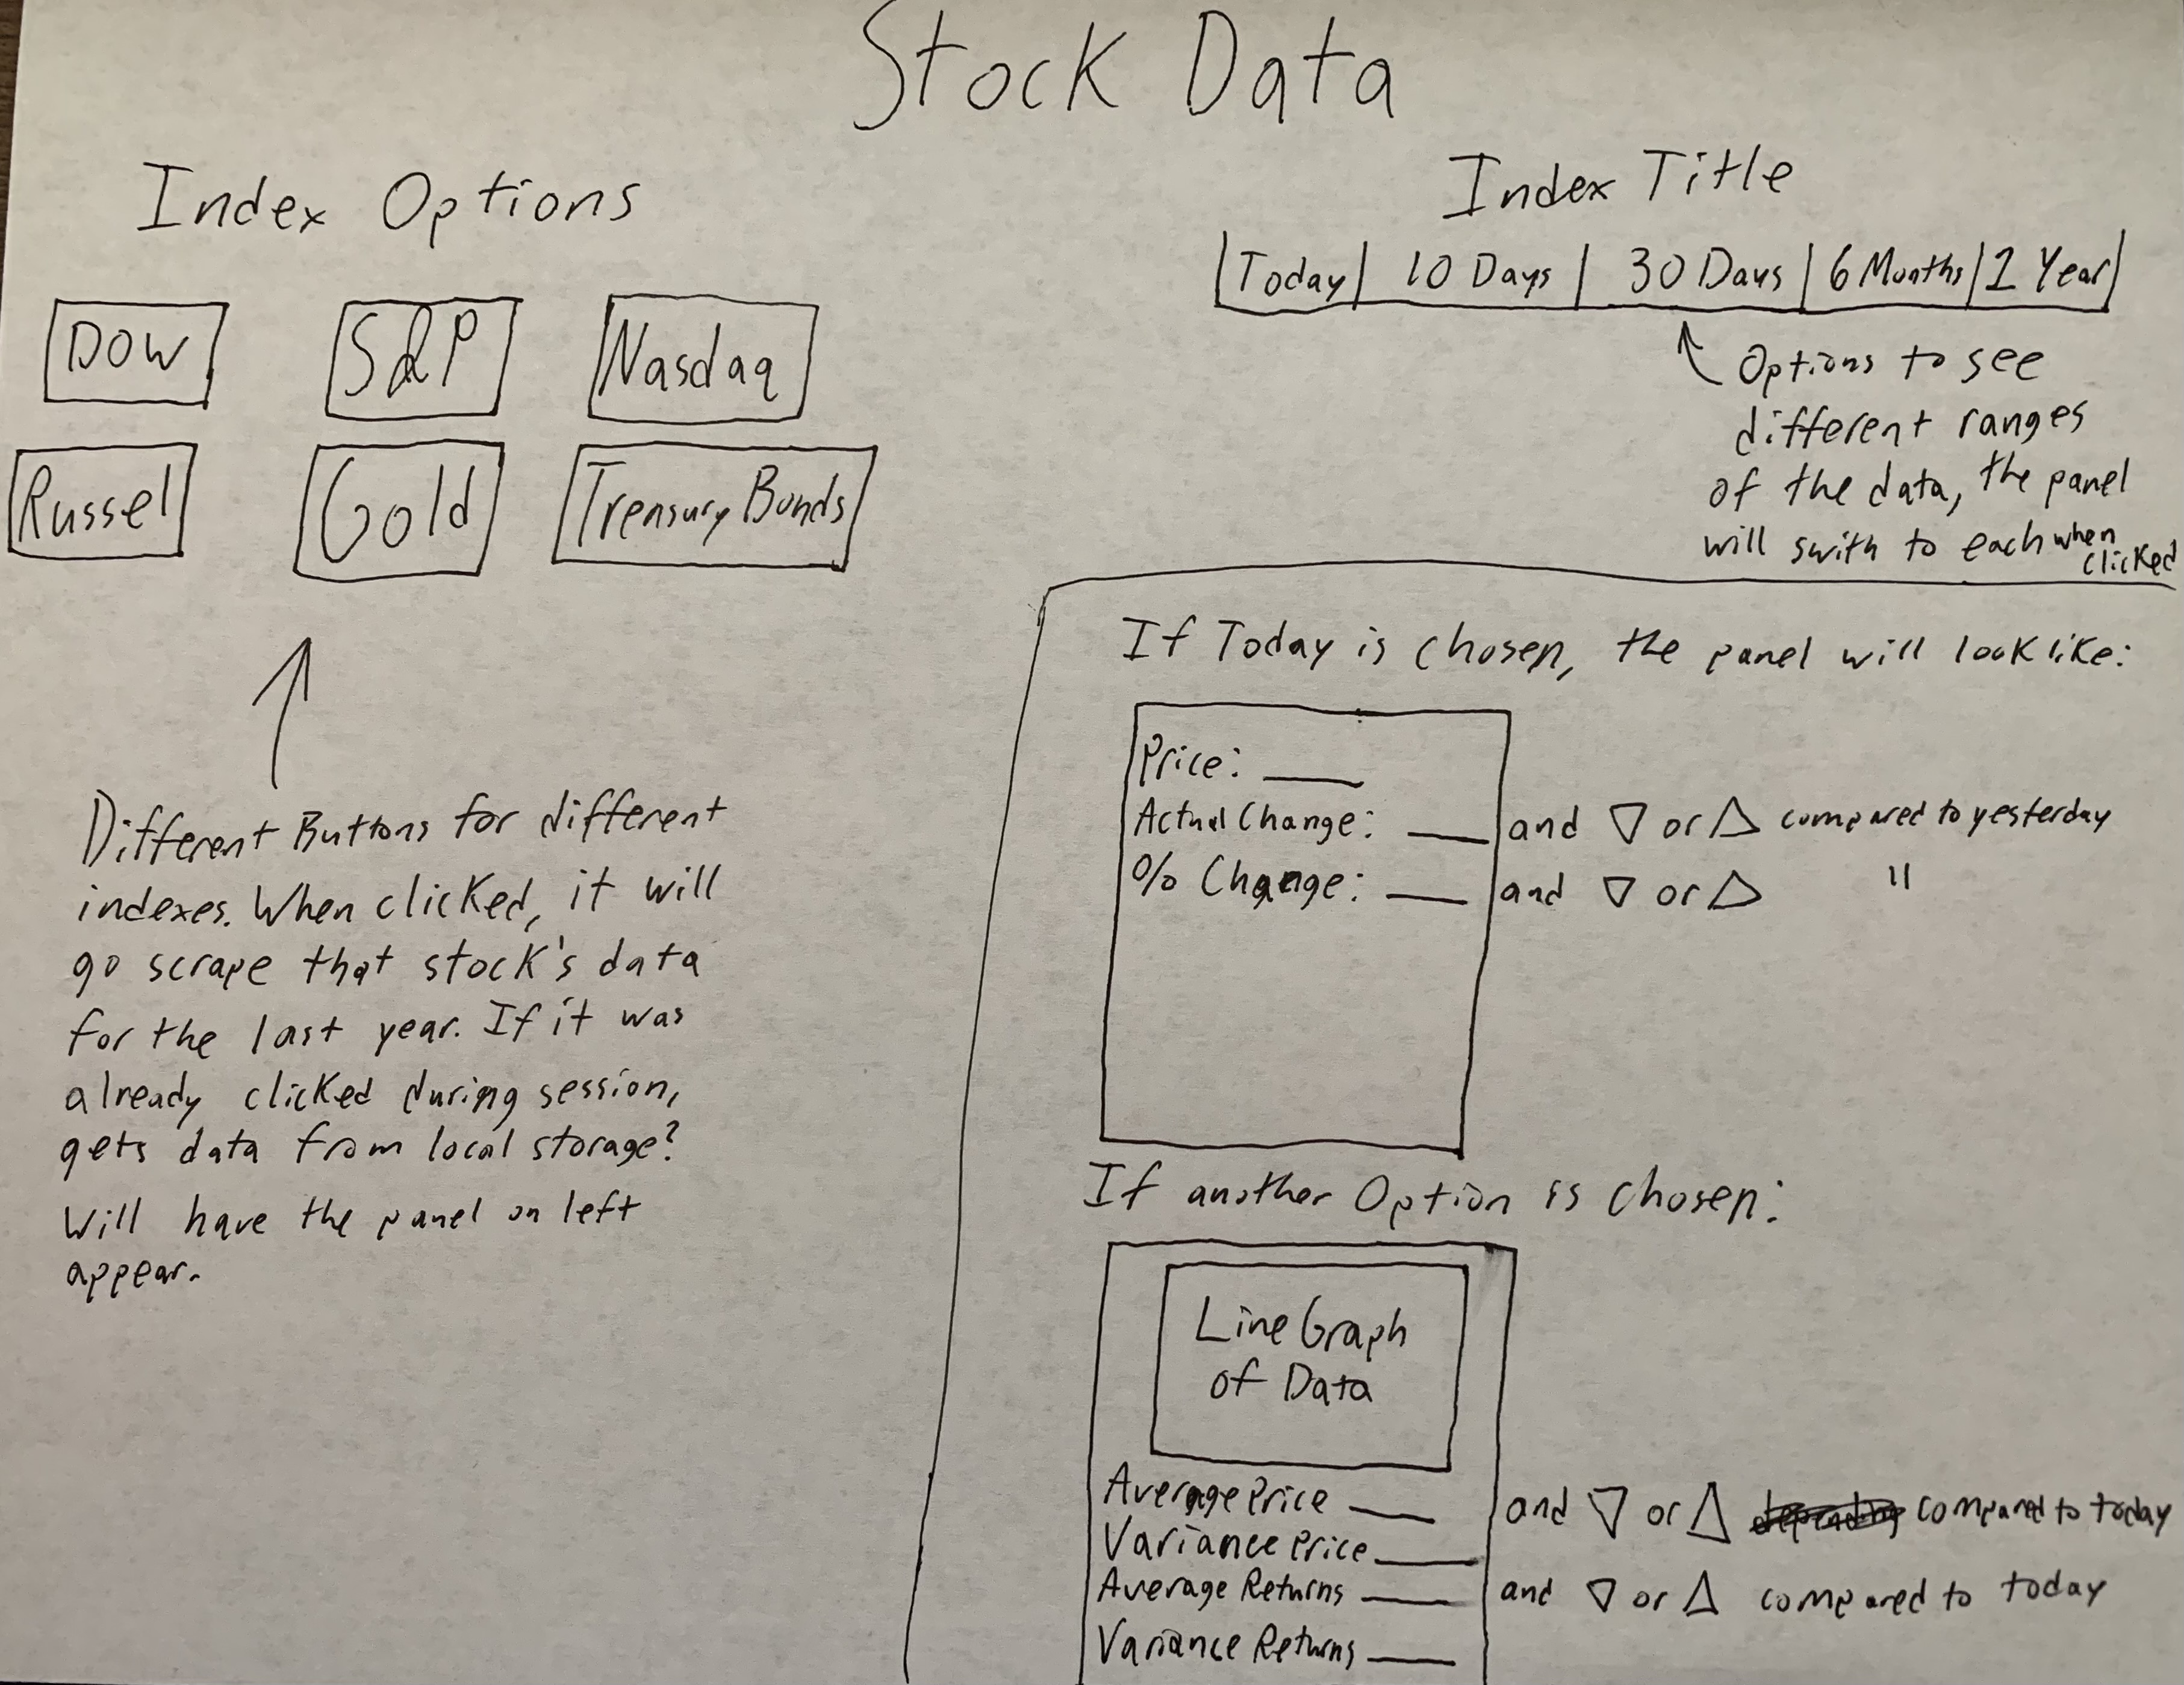 Stock Data
Index Options
DOW
S&P
Nasdaq
Russel
Gold
Treasury Bonds
Different Buttons for different
indexes. When clicked, it will
go scrape that stock's data
for the last year. If it was
already clicked during session,
gets data from local storage?
Will have the panel on left
appear.
Index Title
Today | 10 Days | 30 Days | 6 Months | 1 Year
Options to see
different ranges
of the data, the panel
will swith to each when
clicked
If Today is chosen, the panel will look like:
Price: ___
Actual Change: ___ and ▽ or △ compared to yesterday
% Change: ___ and ▽ or △ "
If another Option is chosen:
Line Graph
of Data
Average Price ___ and ▽ or △ compared to today
Variance Price ___
Average Returns ___ and ▽ or △ compared to today
Variance Returns ___